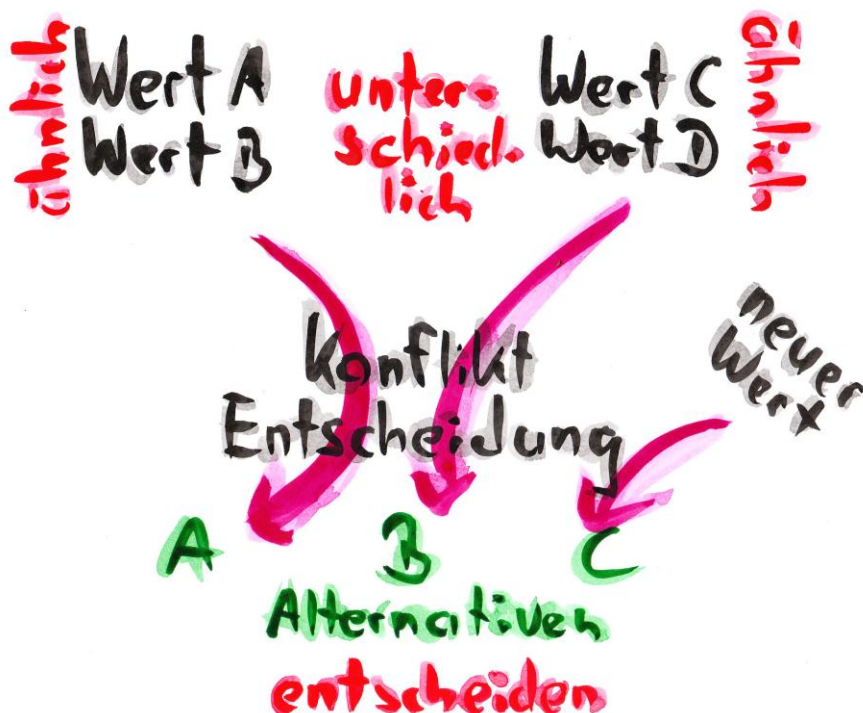 ähnlich
Wert A
Wert B
unter-
schied-
lich
Wert C
Wert D
ähnlich
Konflikt
Entscheidung
neuer
Wert
A
B
C
Alternativen
entscheiden